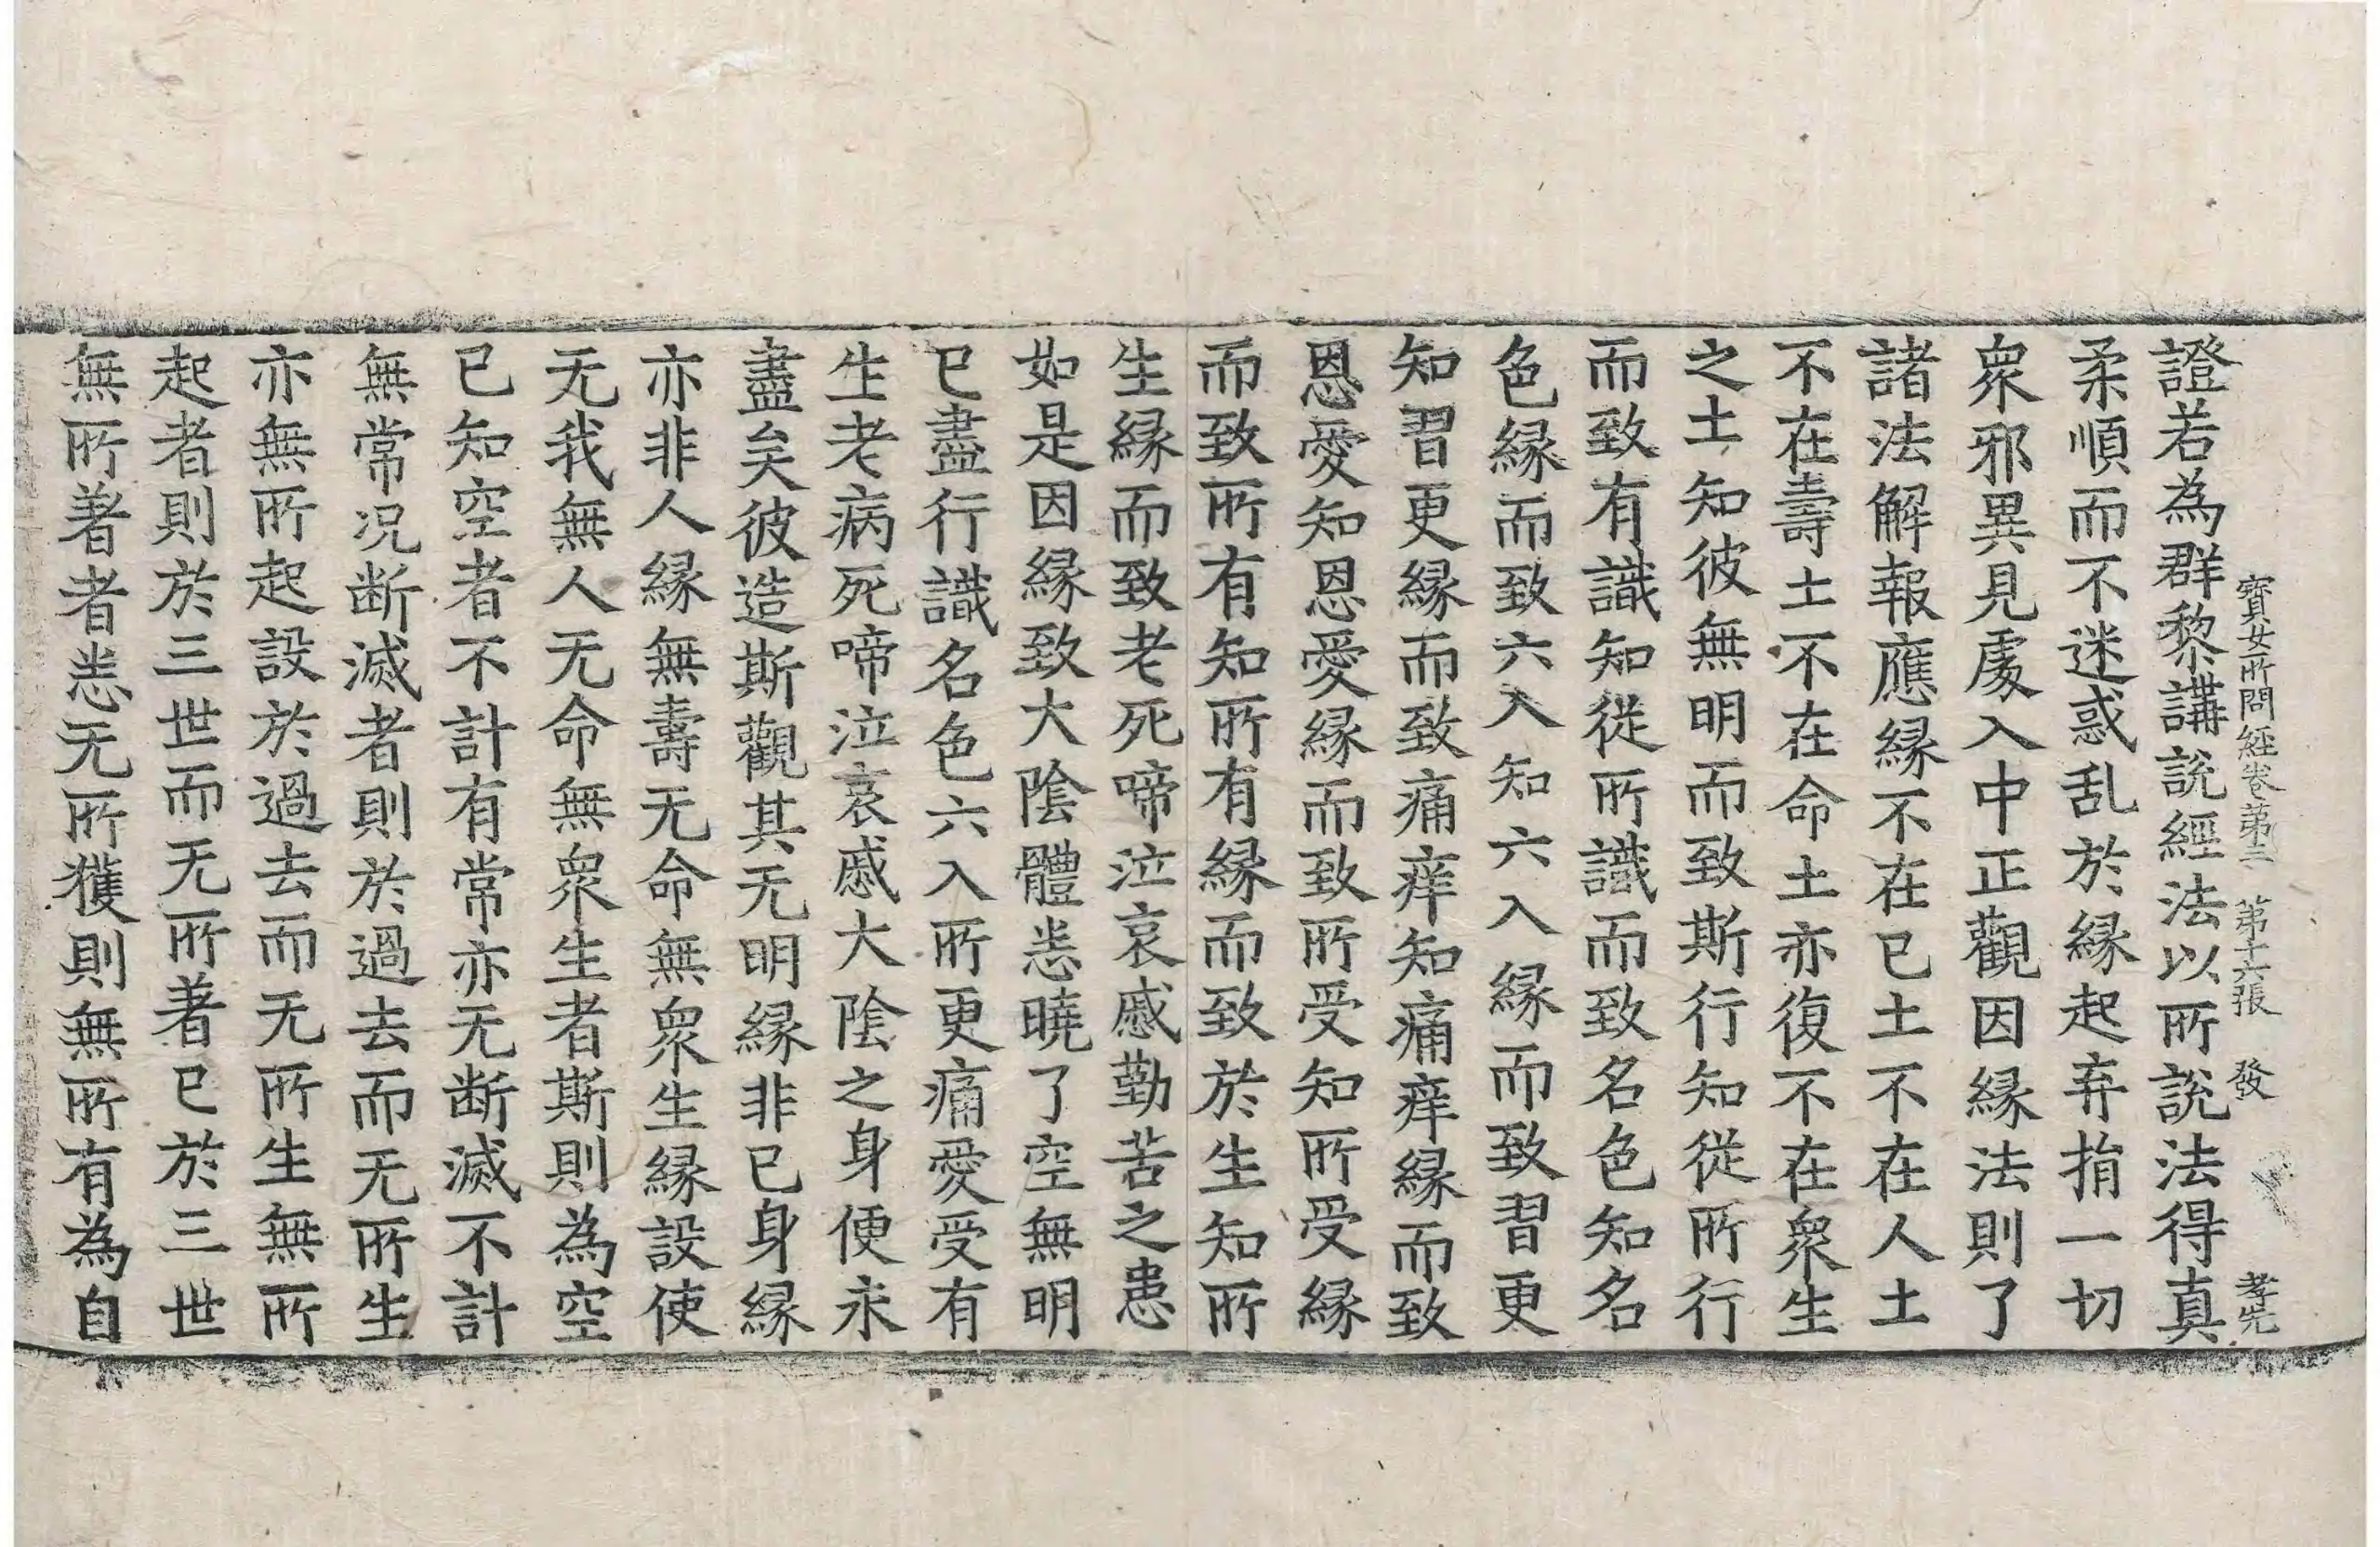 寶女所問經卷第三 第十六張 發 孝先
證若為群黎講說經法以所說法得真
柔順而不迷惑乱於縁起弃捐一切
眾邪異見處入中正觀因縁法則了
諸法解報應縁不在已土不在人土
不在壽土不在命土亦復不在眾生
之土知彼無明而致斯行知從所行
而致有識知從所識而致名色知名
色縁而致六入知六入縁而致習更
知習更縁而致痛痒知痛痒縁而致
恩愛知恩愛縁而致所受知所受縁
而致所有知所有縁而致於生知所
生縁而致老死啼泣哀慼勤苦之患
如是因縁致大陰體恙曉了空無明
已盡行識名色六入所更痛愛受有
生老病死啼泣哀慼大陰之身便永
盡矣彼造斯觀其无明縁非已身縁
亦非人縁無壽无命無眾生縁設使
无我無人无命無眾生者斯則為空
已知空者不計有常亦无断滅不計
無常况断滅者則於過去而无所生
亦無所起設於過去而无所生無所
起者則於三世而无所著已於三世
無所著者恙无所獲則無所有為自